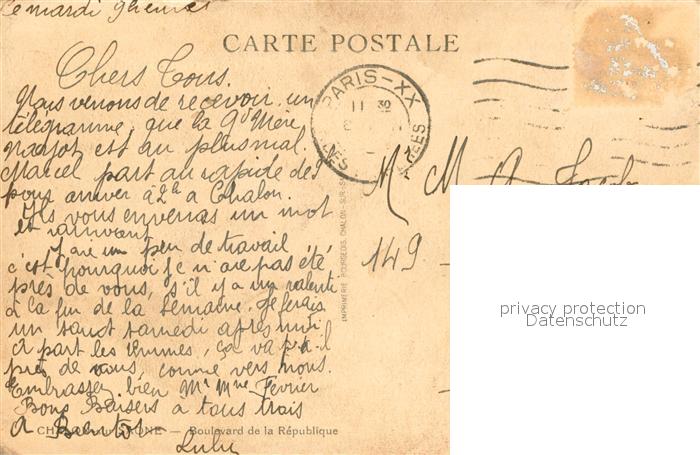 Ce mardi 9 heures
CARTE POSTALE
Chers Tous.
Nous venons de recevoir un
télégramme, que la Gd Mère
est au plus mal.
Marcel part au rapide de
pour arriver à 2h a Chalon.
Ils vous enverras un mot
et
J'aie un peu de travail,
c'est pourquoi je n'aie pas été
près de vous, s'il y a un
à la fin de la Semaine, je ferais
un saut samedi après midi
A part les rhumes, ça va t-il
près de vous, comme vers nous.
Embrassez bien Mr Mme Février
Bons Baisers à tous trois
A Bientot
Lulu
CHALON-SUR-SAONE — Boulevard de la République
IMPRIMERIE BOURGEOIS, CHALON-SUR-S
PARIS-XX
11 30
M M
149
privacy protection
Datenschutz